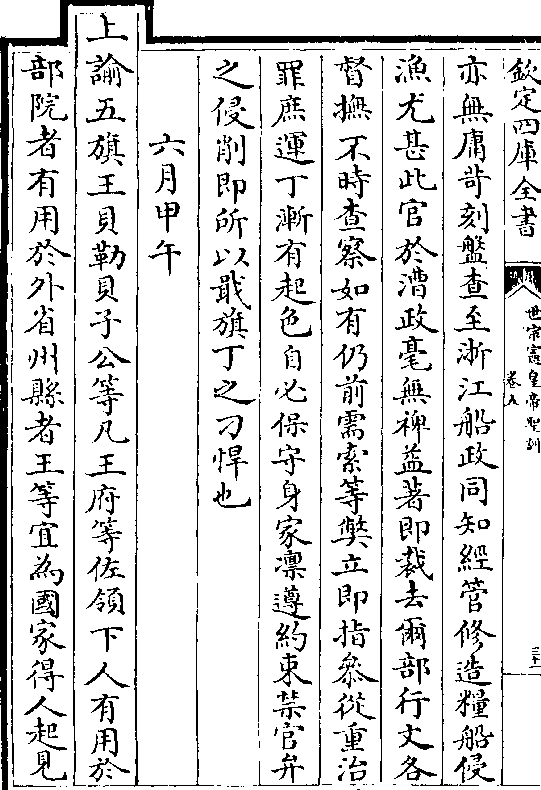 欽定四庫全書
世宗憲皇帝聖訓
卷九
三十二
亦無庸苛刻盤查至浙江船政同知經管修造糧船侵
漁尤甚此官於漕政毫無裨益著即裁去爾部行文各
督撫不時查察如有仍前需索等弊立即指叅從重治
罪庶運丁漸有起色自必保守身家凛遵約束禁官弁
之侵削即所以戢旗丁之刁悍也
六月甲午
上諭五旗王貝勒貝子公等凡王府等佐領下人有用於
部院者有用於外省州縣者王等宜為國家得人起見